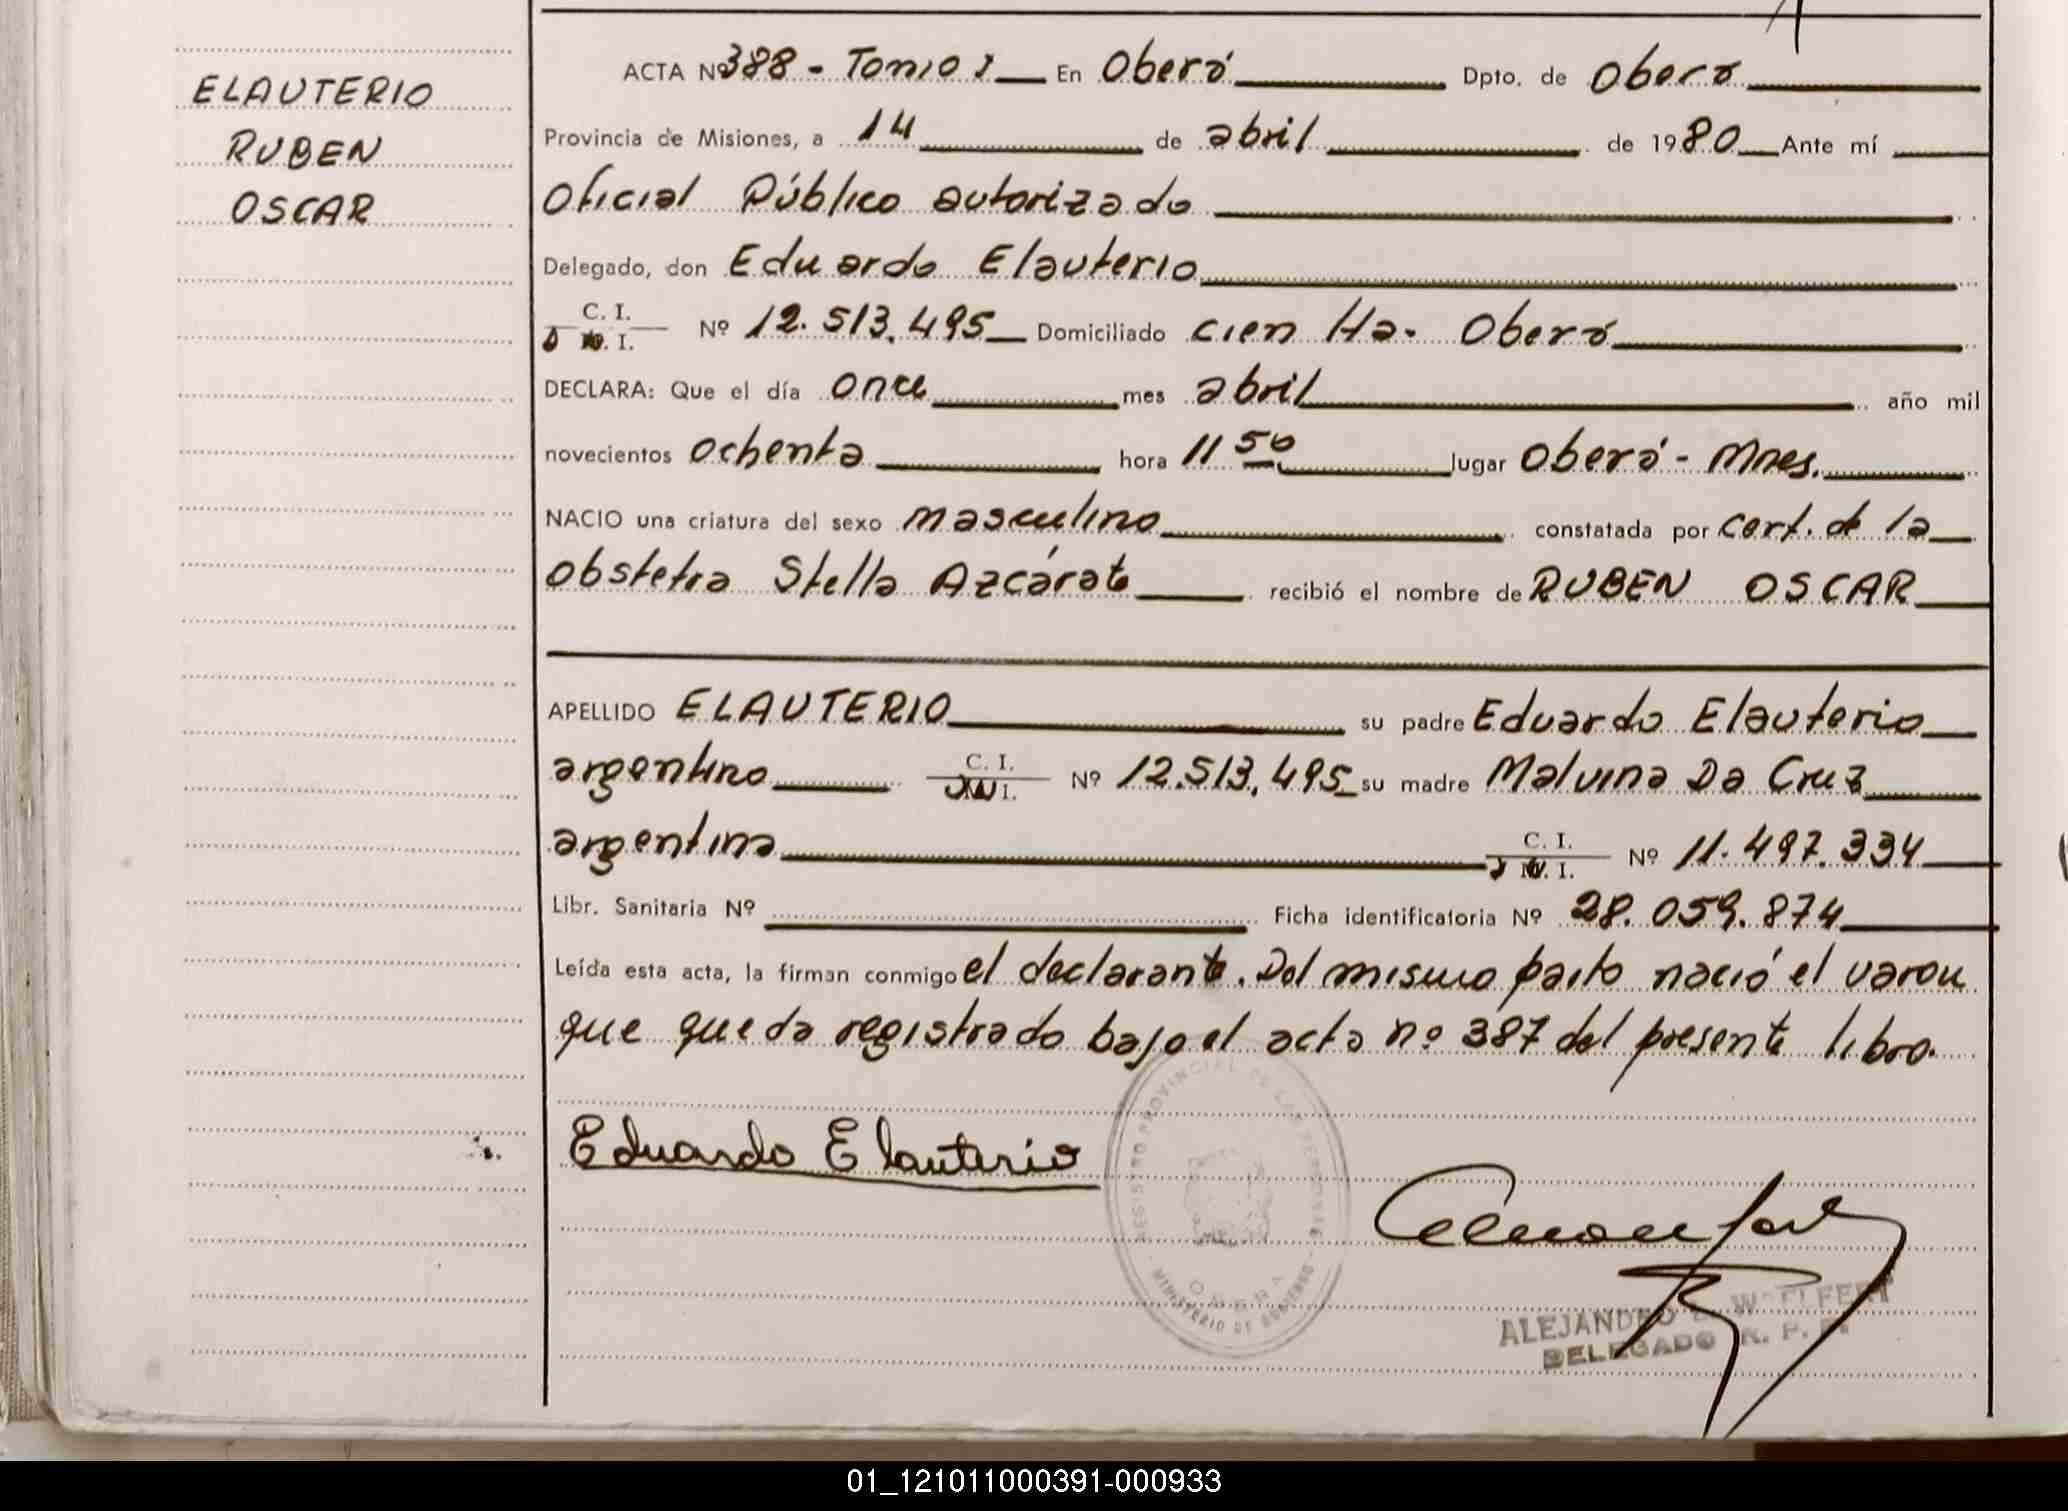 ELAUTERIO
RUBEN
OSCAR
ACTA Nº 388 - Tomo I En Oberá Dpto. de Oberá
Provincia de Misiones, a 14 de abril de 1980 Ante mí
Oficial Público autorizado
Delegado, don Eduardo Elauterio
C. I.
D. N. I. Nº 12.513.495 Domiciliado cien Ha. Oberá
DECLARA: Que el día once mes abril año mil
novecientos ochenta hora 11 50 lugar Oberá - Mnes.
NACIO una criatura del sexo masculino constatada por cert. de la
obstetra Stella Azcárate recibió el nombre de RUBEN OSCAR
APELLIDO ELAUTERIO su padre Eduardo Elauterio
argentino C. I. Nº 12.513.495 su madre Malvina Da Cruz
argentina C. I. Nº 11.497.334
Libr. Sanitaria Nº Ficha identificatoria Nº 28.059.874
Leída esta acta, la firman conmigo el declarante. Del mismo parto nació el varon
que queda registrado bajo el acta nº 387 del presente libro.
Eduardo Elauterio
REGISTRO PROVINCIAL DE LAS PERSONAS
OBERA
MINISTERIO DE GOBIERNO
ALEJANDRO
DELEGADO R. P. P.
01_121011000391-000933